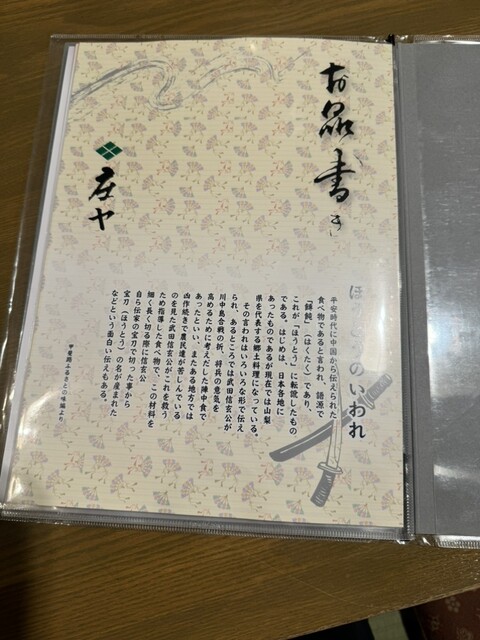 お品書き
ほうとうのいわれ
平安時代に中国から伝えられた
食べ物であると言われ、語源で
「餺飥」（はくたく）であり、
これが「ほうとう」に転訛したもの
である。はじめは、日本各地に
あったものであるが現在では山梨
県を代表する郷土料理になっている。
その言われはいろいろな形で伝え
られ、あるところでは武田信玄公が
川中島合戦の折、将兵の意気を
高めるために考えだした陣中食で
あったといい、またある地方では
凶作続きで農民達が苦しんでいる
のを見た武田信玄公がこれを救う
ため指導した食べ物で、この材料を
細く長く切る際に信玄公
自ら伝家の宝刀で切った事から
宝刀（ほうとう）の名が産まれた
などという面白い伝えもある。
甲斐路ふるさとの味誌より
庄ヤ